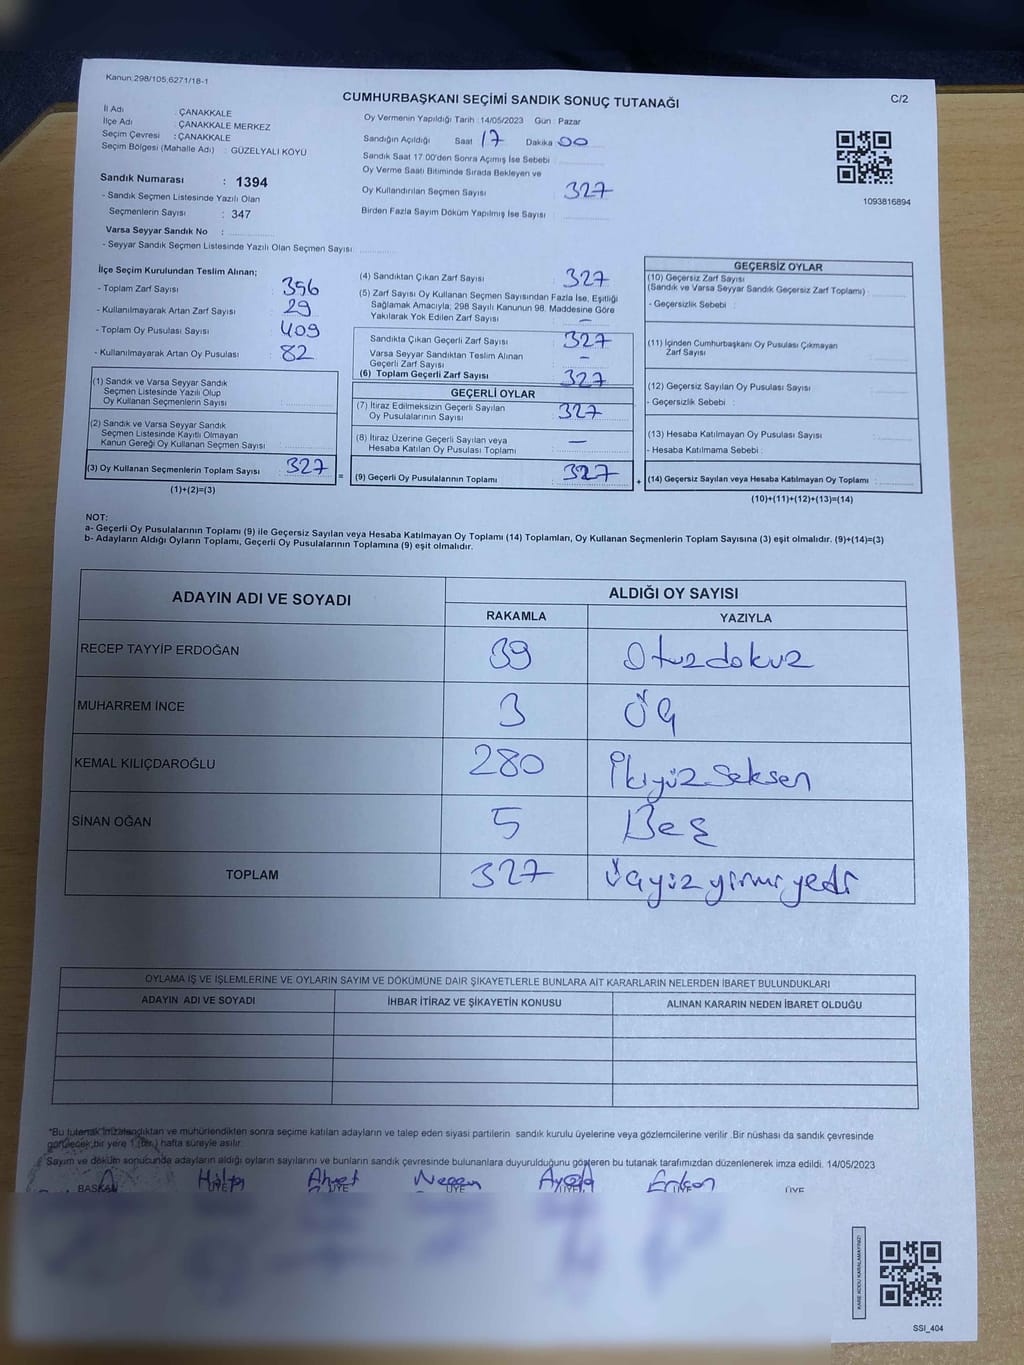 Kanun:298/105,6271/18-1
CUMHURBAŞKANI SEÇİMİ SANDIK SONUÇ TUTANAĞI
C/2
İl Adı : ÇANAKKALE
İlçe Adı : ÇANAKKALE MERKEZ
Seçim Çevresi : ÇANAKKALE
Seçim Bölgesi (Mahalle Adı) : GÜZELYALI KÖYÜ
Sandık Numarası : 1394
- Sandık Seçmen Listesinde Yazılı Olan
Seçmenlerin Sayısı : 347
Varsa Seyyar Sandık No :
- Seyyar Sandık Seçmen Listesinde Yazılı Olan Seçmen Sayısı
Oy Vermenin Yapıldığı Tarih : 14/05/2023 Gün : Pazar
Sandığın Açıldığı Saat 17 Dakika 00
Sandık Saat 17:00'den Sonra Açımış İse Sebebi
Oy Verme Saati Bitiminde Sırada Bekleyen ve
Oy Kullandırılan Seçmen Sayısı 327
Birden Fazla Sayım Döküm Yapılmış İse Sayısı
1093816894
İlçe Seçim Kurulundan Teslim Alınan;
- Toplam Zarf Sayısı 356
- Kullanılmayarak Artan Zarf Sayısı 29
- Toplam Oy Pusulası Sayısı 409
- Kullanılmayarak Artan Oy Pusulası 82
(1) Sandık ve Varsa Seyyar Sandık
Seçmen Listesinde Yazılı Olup
Oy Kullanan Seçmenlerin Sayısı
(2) Sandık ve Varsa Seyyar Sandık
Seçmen Listesinde Kayıtlı Olmayan
Kanun Gereği Oy Kullanan Seçmen Sayısı
(3) Oy Kullanan Seçmenlerin Toplam Sayısı 327 =
(1)+(2)=(3)
(4) Sandıktan Çıkan Zarf Sayısı 327
(5) Zarf Sayısı Oy Kullanan Seçmen Sayısından Fazla İse, Eşitliği
Sağlamak Amacıyla, 298 Sayılı Kanunun 98. Maddesine Göre
Yakılarak Yok Edilen Zarf Sayısı –
Sandıkta Çıkan Geçerli Zarf Sayısı 327
Varsa Seyyar Sandıktan Teslim Alınan
Geçerli Zarf Sayısı –
(6) Toplam Geçerli Zarf Sayısı 327
GEÇERLİ OYLAR
(7) İtiraz Edilmeksizin Geçerli Sayılan
Oy Pusulalarının Sayısı 327
(8) İtiraz Üzerine Geçerli Sayılan veya
Hesaba Katılan Oy Pusulası Toplamı –
(9) Geçerli Oy Pusulalarının Toplamı 327 +
GEÇERSİZ OYLAR
(10) Geçersiz Zarf Sayısı
(Sandık ve Varsa Seyyar Sandık Geçersiz Zarf Toplamı) :
- Geçersizlik Sebebi :
(11) İçinden Cumhurbaşkanı Oy Pusulası Çıkmayan
Zarf Sayısı
(12) Geçersiz Sayılan Oy Pusulası Sayısı
- Geçersizlik Sebebi :
(13) Hesaba Katılmayan Oy Pusulası Sayısı
- Hesaba Katılmama Sebebi :
(14) Geçersiz Sayılan veya Hesaba Katılmayan Oy Toplamı
(10)+(11)+(12)+(13)=(14)
NOT:
a- Geçerli Oy Pusulalarının Toplamı (9) ile Geçersiz Sayılan veya Hesaba Katılmayan Oy Toplamı (14) Toplamları, Oy Kullanan Seçmenlerin Toplam Sayısına (3) eşit olmalıdır. (9)+(14)=(3)
b- Adayların Aldığı Oyların Toplamı, Geçerli Oy Pusulalarının Toplamına (9) eşit olmalıdır.
ADAYIN ADI VE SOYADI
ALDIĞI OY SAYISI
RAKAMLA YAZIYLA
RECEP TAYYİP ERDOĞAN 39 Otuzdokuz
MUHARREM İNCE 3 Üç
KEMAL KILIÇDAROĞLU 280 İkiyüzseksen
SİNAN OĞAN 5 Beş
TOPLAM 327 Üçyüzyirmiyedi
OYLAMA İŞ VE İŞLEMLERİNE VE OYLARIN SAYIM VE DÖKÜMÜNE DAİR ŞİKAYETLERLE BUNLARA AİT KARARLARIN NELERDEN İBARET BULUNDUKLARI
ADAYIN ADI VE SOYADI İHBAR İTİRAZ VE ŞİKAYETİN KONUSU ALINAN KARARIN NEDEN İBARET OLDUĞU
*Bu tutanak imzalandıktan ve mühürlendikten sonra seçime katılan adayların ve talep eden siyasi partilerin sandık kurulu üyelerine veya gözlemcilerine verilir .Bir nüshası da sandık çevresinde
görülecek bir yere 1 (bir) hafta süreyle asılır.
Sayım ve döküm sonucunda adayların aldığı oyların sayılarını ve bunların sandık çevresinde bulunanlara duyurulduğunu gösteren bu tutanak tarafımızdan düzenlenerek imza edildi. 14/05/2023
Ahmet Ayşe Erkan
BAŞKAN ÜYE ÜYE ÜYE ÜYE ÜYE ÜYE
KARE KODU KARALAMAYINIZ!
SSI_404